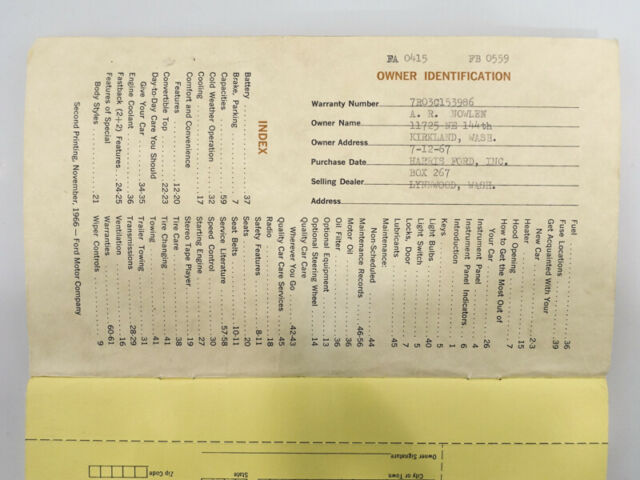 FA 0415 FB 0559
OWNER IDENTIFICATION
Warranty Number 7R03C153986
Owner Name A. R. NOWLEN
Owner Address 11725 NE 144th
KIRKLAND, WASH.
Purchase Date 7-12-67
Selling Dealer HARRIS FORD, INC.
BOX 267
Address LYNNWOOD, WASH.
INDEX
Battery 37
Brake, Parking 7
Capacities 59
Cold Weather Operation 32
Cooling 17
Comfort and Convenience
Features 12-20
Convertible Top 22-23
Day-to-Day Care You Should
Give Your Car 34-35
Engine Coolant 36
Fastback (2+2) Features 24-25
Features of Special
Body Styles 21
Fuel 36
Fuse Locations 39
Get Acquainted With Your
New Car 2-3
Heater 15
Hood Opening 7
How to Get the Most Out of
Your Car 26
Instrument Panel 4
Instrument Panel Indicators 6
Introduction 1
Keys 5
Light Bulbs 40
Light Switch 5
Lock, Door 7
Lubricants 45
Maintenance:
Non-Scheduled 44
Maintenance Records 46-56
Motor Oil 36
Oil Filter 36
Optional Equipment 13
Optional Steering Wheel 14
Quality Car Care
Wherever You Go 42-43
Quality Car Care Services 45
Radio 18
Safety Features 8-11
Seats 20
Seat Belts 10-11
Service Literature 57-58
Speed Control 30
Starting Engine 27
Stereo Tape Player 19
Tire Care 38
Tire Changing 41
Towing 41
Trailer Towing 31
Transmissions 28-29
Ventilation 16
Warranties 60-61
Wiper Controls 9
Second Printing, November, 1966 — Ford Motor Company
Owner Signature
City or Town State Zip Code